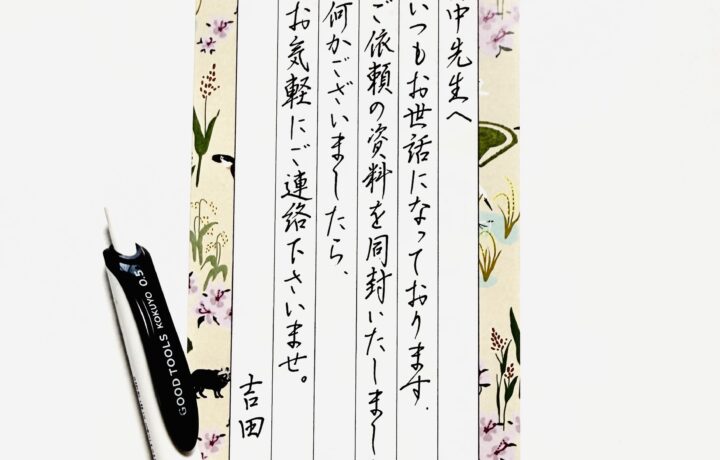 中先生へ
いつもお世話になっております.
ご依頼の資料を同封いたしまし
何かございましたら、
お気軽にご連絡下さいませ。
吉田
GOOD TOOLS KOKUYO 0.5